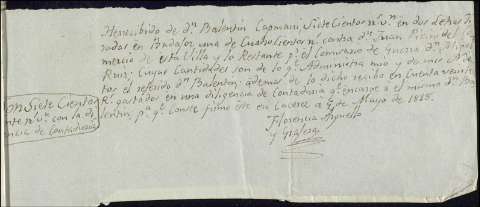 He recibido de dn. Balentin Capmani Siete Cientos rs. vn. en dos letras
radas en Badajoz una de Cuatro Cientos rs. contra dn. Juan Pizini del Co
mercio de esta Villa y lo Restante pr. el Comisario de Guerra dn. Miguel
Ruiz: Cuyas Cantidades son de lo qe. Administra mio y de mis
tos el referido dn. Balentin: ademas de lo dicho recibo en Cuenta veinte
Rs. gastados en una diligencia de Contaduria qe. encarge a el mismo dn. Ba
lentin, pa. qe. Conste firmo este en Caceres a 6 de Mayo de 1815.
Florencia Arguello
y
on Siete Cientos
nte rs. vn. con la di
encia de Contaduria